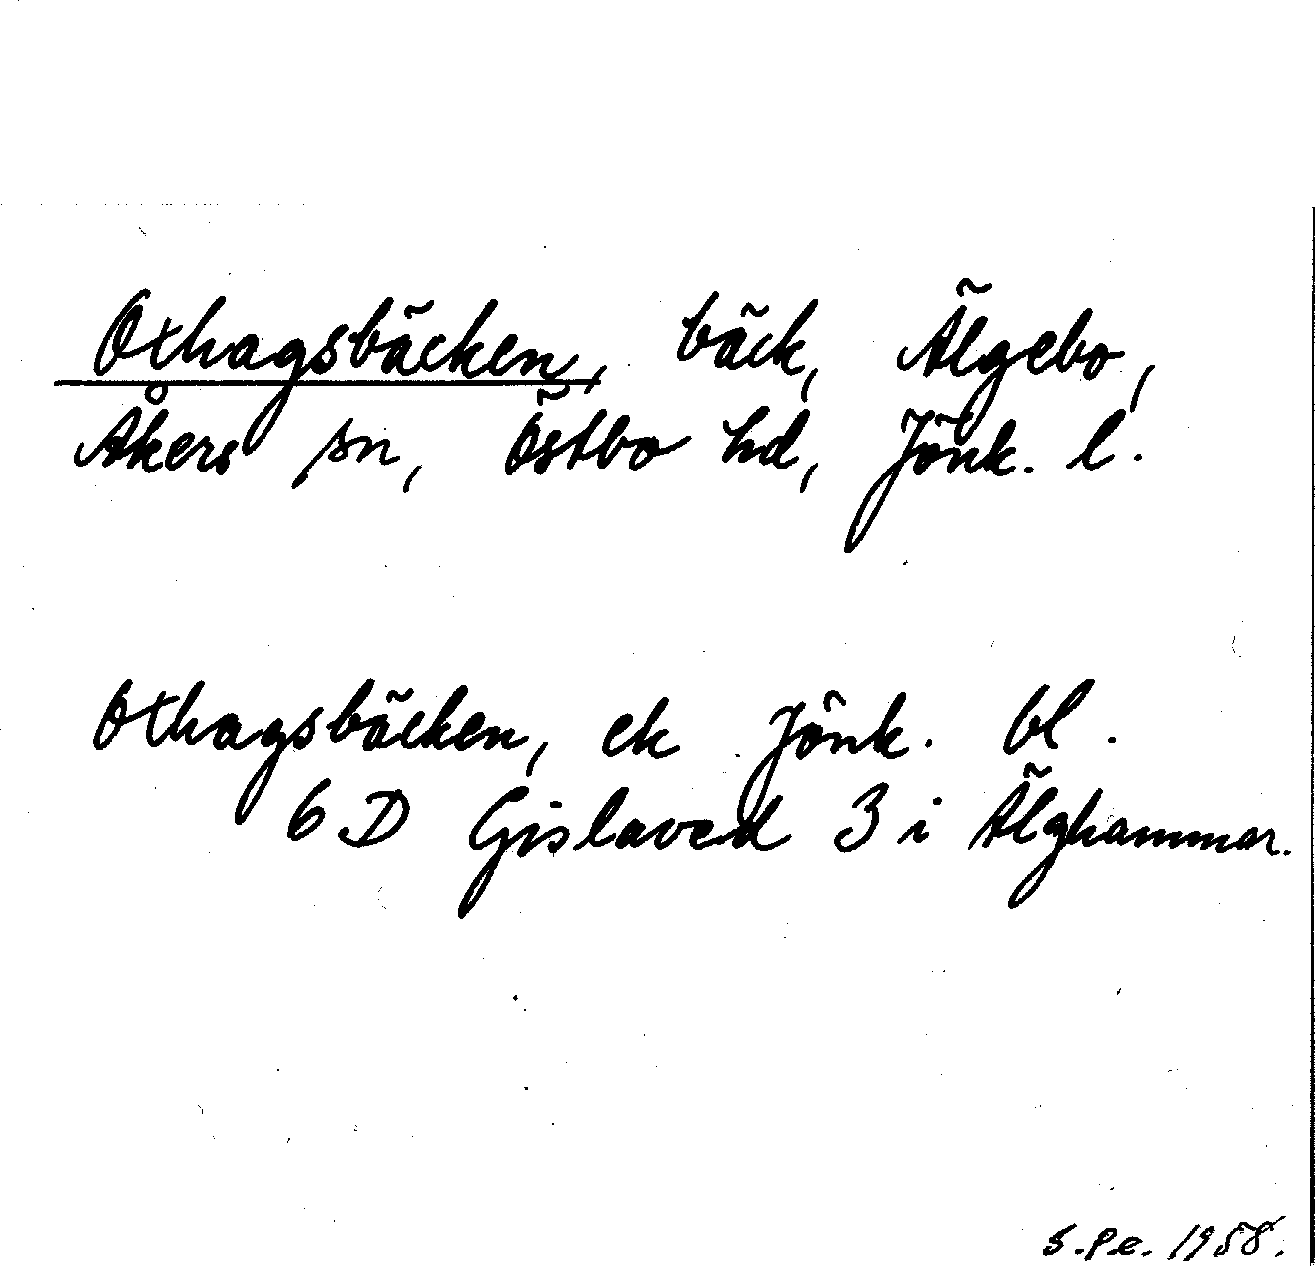 Othagsbäcken, bäck, Älgebo,
Åkers sn, Östbo hd, Jönk. l.
Othagsbäcken, ek Jönk. bl.
6 D Gislaved 3 i Älghammar.
S.Pe. 1958.